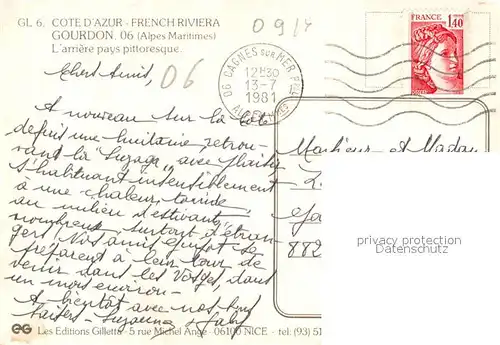 GL 6. COTE D'AZUR - FRENCH RIVIERA
GOURDON. 06 (Alpes Maritimes)
L'arrière pays pittoresque.
09/4
06
FRANCE
1,40
06 CAGNES SUR MER PPAL
12H30
13-7
1981
ALPES MMES
Chers Amis,
A nouveau sur la Côte
depuis une huitaine retrou-
vant la "Suzaga" avec plaisir
S'habituant insensiblement
à une chaleur torride,
au milieu d'estivants
nombreux surtout d'étran-
gers. Nos amis se
préparent à leur tour de
venir dans les Vosges, dans
un mois environ-
A bientôt avec nos
Suzanne & Gaby
Monsieur et Madame
882
privacy protection
Datenschutz
Les Editions Gilletta - 5 rue Michel Ange - 06100 NICE - tel: (93) 51